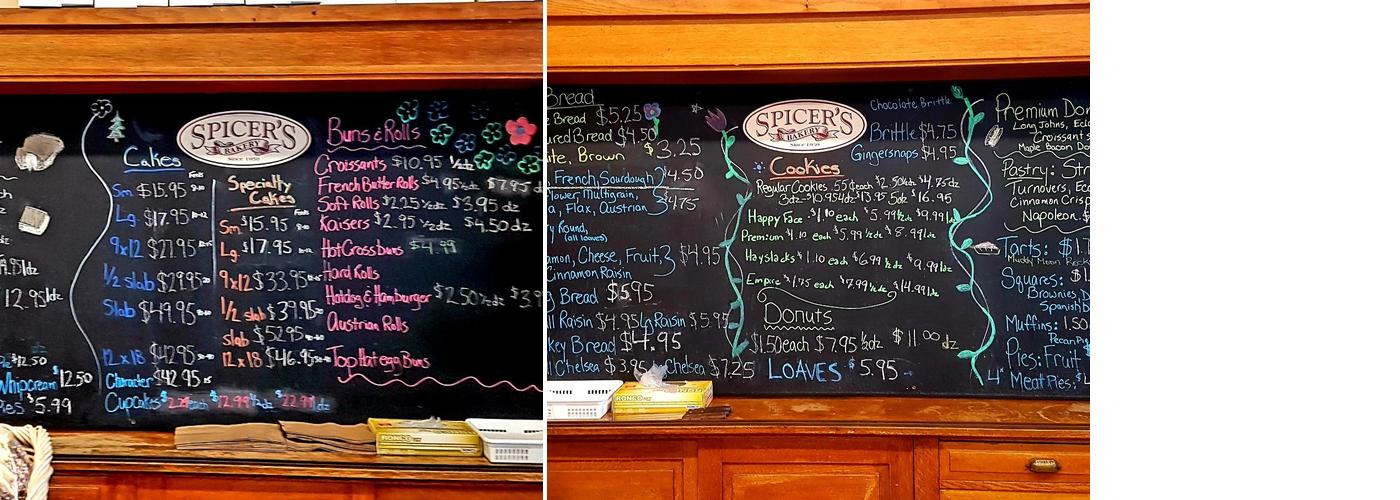 12.95dz
$12.50
Whipcream $12.50
Pies $5.99
Cakes
Sm $15.95
Lg. $17.95
9x12
1/2 slab
Slab $49.95
12x18 $42.95
Character $42.95
Cupcakes each $12.99 1/2dz $22.99 dz
SPICER'S
BAKERY
Since 1959
Specialty
Cakes
Sm $15.95
Lg. $17.95
9x12 $33.95
1/2 slab $39.95
slab $52.95
12x18 $46.95
Buns & Rolls
Croissants $10.95 1/2dz
French Butter Rolls $4.95 1/2dz $7.95 d
Soft Rolls $2.25 1/2dz $3.95 dz
Kaisers $2.95 1/2dz $4.50 dz
Hot Cross buns $4.99
Hard Rolls
Hotdog & Hamburger $2.50 1/2dz $3.9
Austrian Rolls
Top Hat egg Buns
RONCO
Bread
e Bread $5.25
ured Bread $4.50
ite, Brown $3.25
French, Sourdough $4.50
lower, Multigrain,
a, Flax, Austrian $4.75
y Round,
(all loaves)
amon, Cheese, Fruit, $4.95
Cinnamon Raisin
g Bread $5.95
ll Raisin $4.95 Lg Raisin $5.95
key Bread $4.95
l Chelsea $3.95 Lg Chelsea $7.25
SPICER'S
BAKERY
Since 1959
Chocolate Brittle
Brittle $4.75
Gingersnaps $4.95
Cookies
Regular Cookies 55¢ each $2.50 1/2dz $4.75dz
3dz-$10.95 4dz $13.95 5dz $16.95
Happy Face $1.10 each $5.99 1/2dz $9.99
Premium $1.10 each $5.99 1/2dz $8.99
Haystacks $1.10 each $6.99 1/2 dz $9.99
Empire $1.75 each $7.99 1/2dz $14.99
Donuts
$1.50 each $7.95 1/2dz $11.00 dz
LOAVES $5.95
Premium Don
Long Johns, Ecl
Croissants
Maple Bacon Do
Pastry: Str
Turnovers, Ecc
Cinnamon Crisp
Napoleon
Tarts: $1.
Muddy Moon Rocks
Squares: $1.
Brownies, D
Spanish B
Muffins: 1.50
Pecan
Pies: Fruit $
4" Meat Pies
RONCO